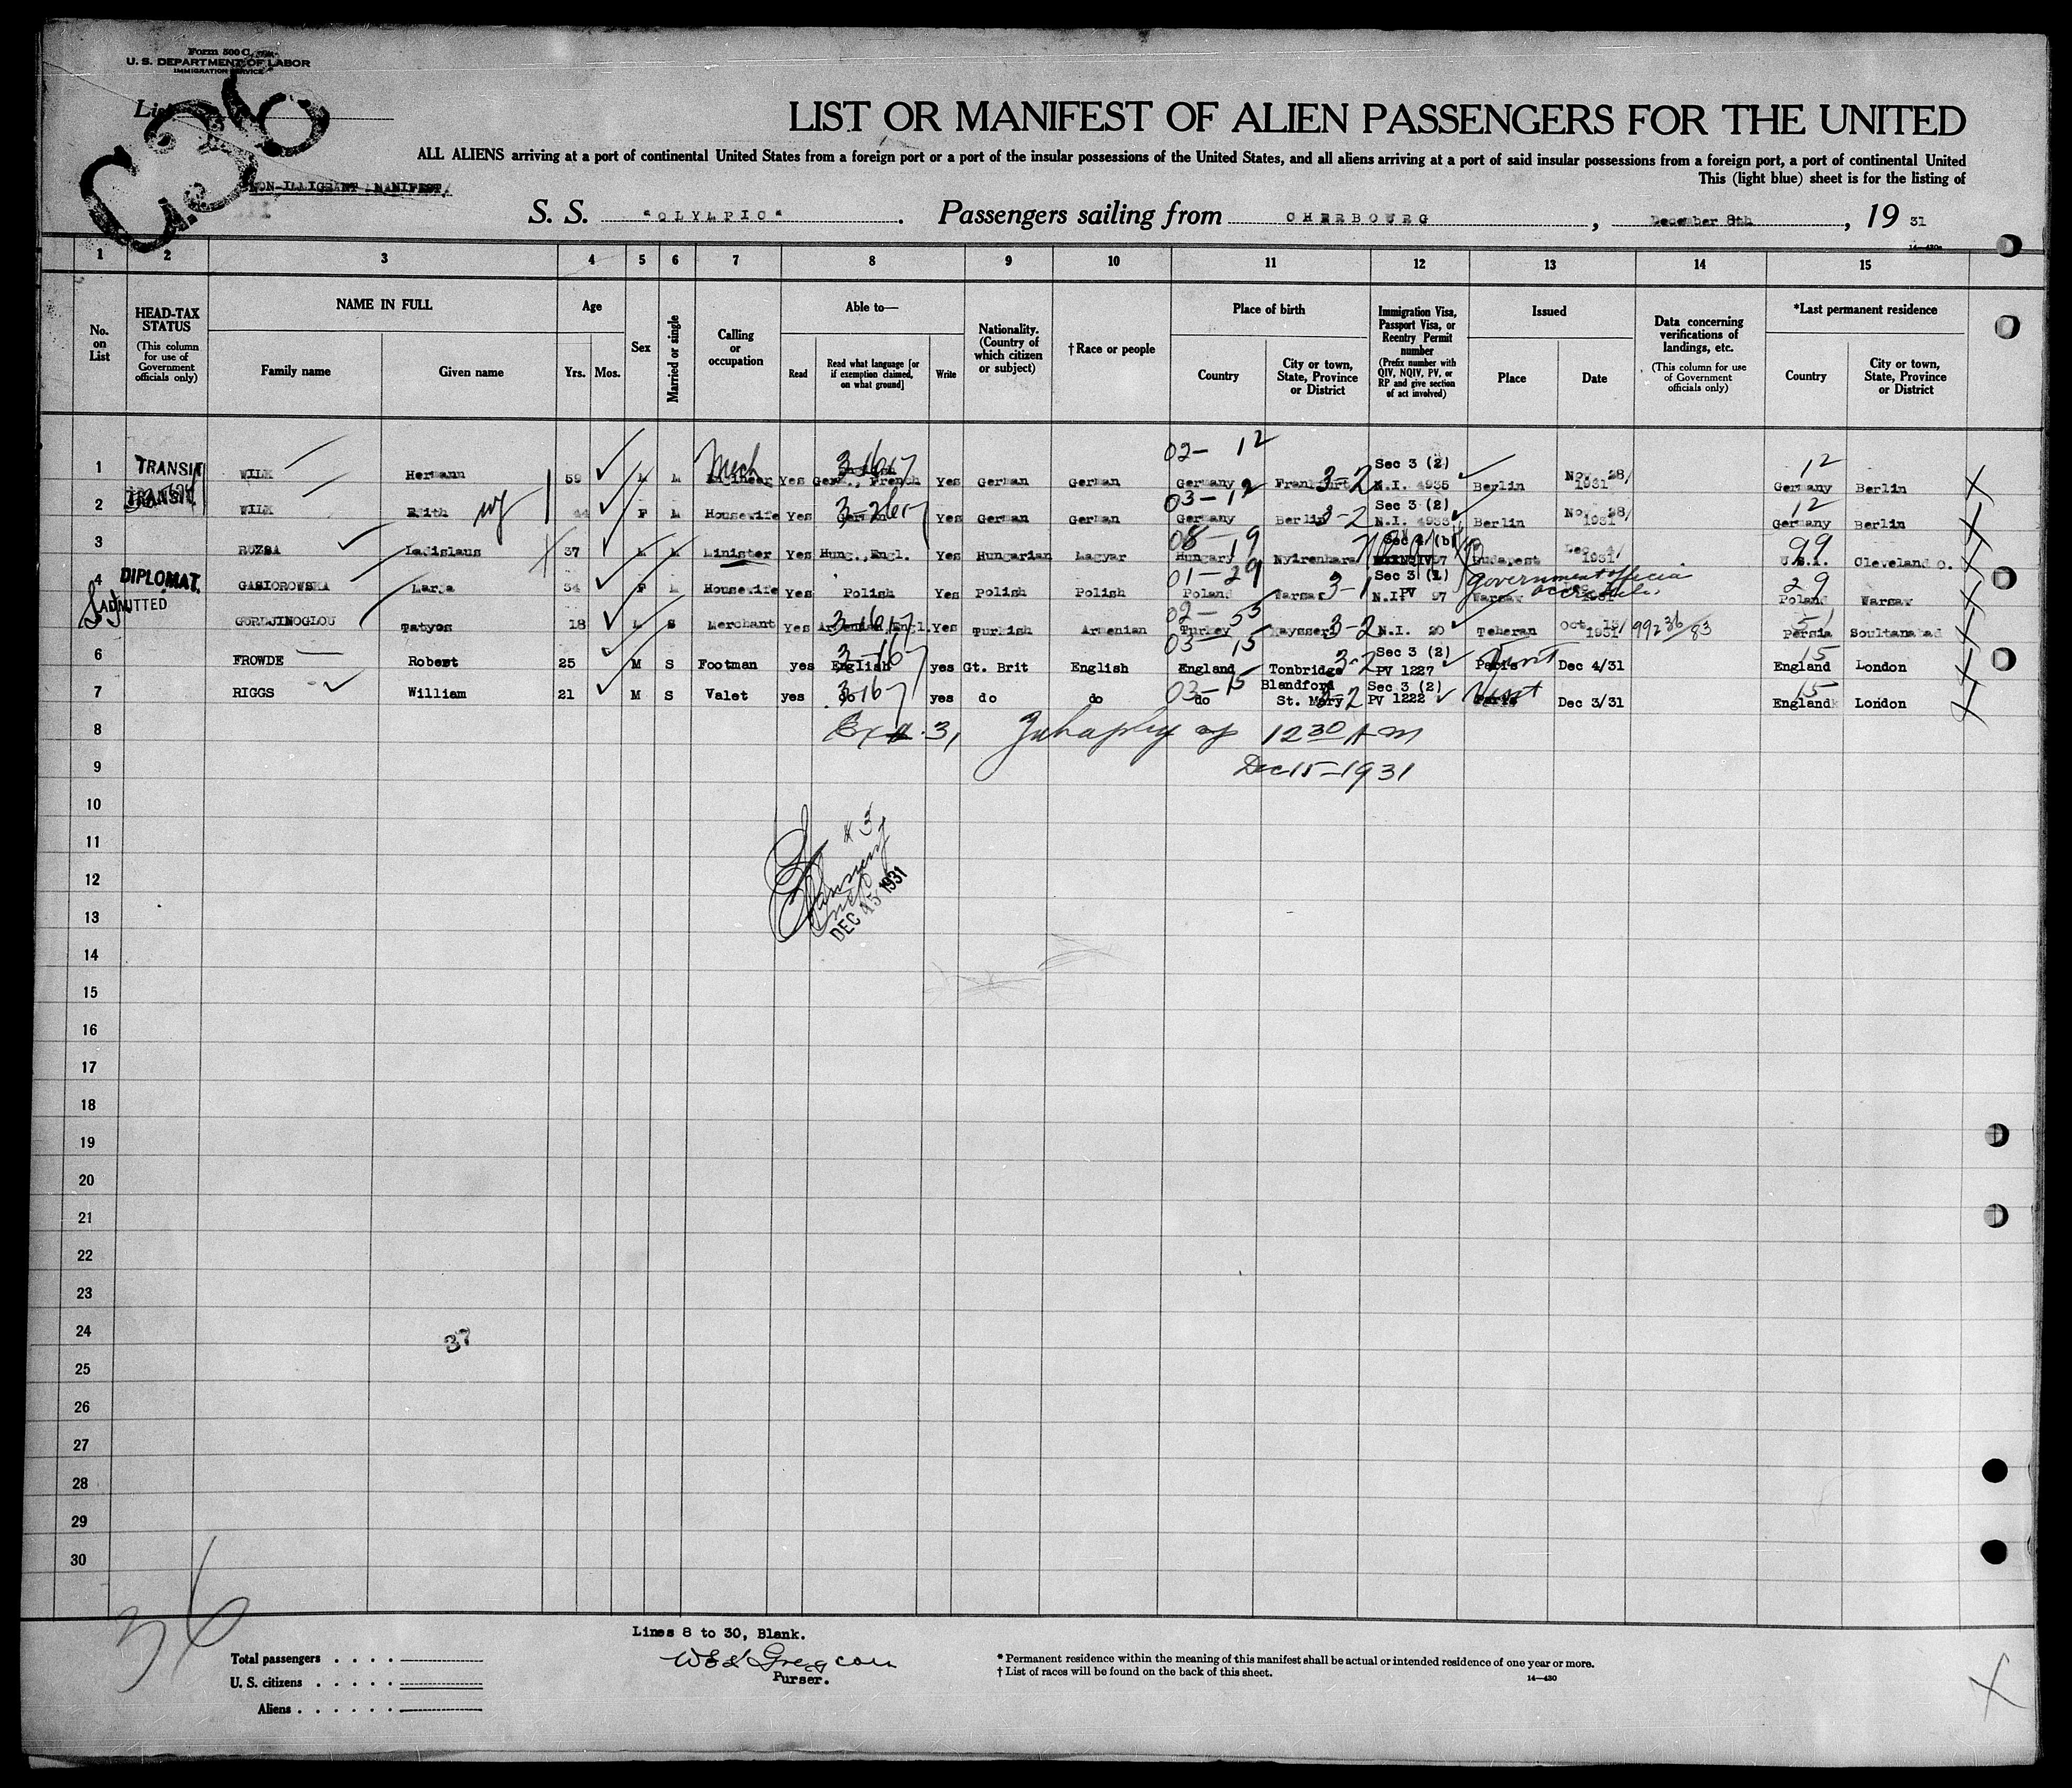 Form 500 C
U. S. DEPARTMENT OF LABOR
IMMIGRATION SERVICE
List
C36
LIST OR MANIFEST OF ALIEN PASSENGERS FOR THE UNITED
ALL ALIENS arriving at a port of continental United States from a foreign port or a port of the insular possessions of the United States, and all aliens arriving at a port of said insular possessions from a foreign port, a port of continental United
This (light blue) sheet is for the listing of
S. S. "OLYMPIC". Passengers sailing from CHERBOURG, December 8th, 19 31
1 2 3 4 5 6 7 8 9 10 11 12 13 14 15
No. on List
HEAD-TAX STATUS
(This column for use of Government officials only)
NAME IN FULL
Family name
Given name
Age
Yrs. Mos.
Sex
Married or single
Calling or occupation
Able to—
Read
Read what language [or if exemption claimed, on what ground]
Write
Nationality. (Country of which citizen or subject)
†Race or people
Place of birth
Country
City or town, State, Province or District
Immigration Visa, Passport Visa, or Reentry Permit number
(Prefix number with QIV, NQIV, PV, or RP and give section of act involved)
Issued
Place
Date
Data concerning verifications of landings, etc.
(This column for use of Government officials only)
*Last permanent residence
Country
City or town, State, Province or District
02- 12
1 TRANSIT WILK Hermann 59 M M Mech Engineer Yes Germ., French Yes German German Germany Frankfurt 3-2 Sec 3 (2) N.I. 4935 Berlin Nov. 28/ 1931 12 Germany Berlin
03-12
2 TRANSIT WILK Edith 44 F M Housewife Yes German Yes German German Germany Berlin 3-2 Sec 3 (2) Berlin Nov. 28/ 1931 12 Germany Berlin
08-19
3 RUZSA Ladislaus 37 M M Minister Yes Hung., Engl. Yes Hungarian Magyar Hungary Sec 4 (b) Budapest Dec 1931 99 U.S.A. Cleveland O.
01-29
4 DIPLOMAT. ADMITTED GASIOROWSKA Marja 34 F M Housewife Yes Polish Yes Polish Polish Poland Warsaw 3-1 N.I. PV 97 Government official Warsaw 1931 29 Poland Warsaw
02- 53
GURDJINOGLOU Tatyos 18 M S Merchant Yes Armenian, Engl. Yes Turkish Armenian Turkey Kaysseri 3-2 N.I. 20 Teheran Oct. 1931 Persia Soultanabad
03-15
6 FROWDE Robert 25 M S Footman yes English yes Gt. Brit English England Tonbridge 3-2 Sec 3 (2) PV 1227 Paris Dec 4/31 15 England London
03-15
7 RIGGS William 21 M S Valet yes do yes do do do Blandford St. Mary 3-2 Sec 3 (2) PV 1222 Paris Dec 3/31 15 England London
8 12 30 AM
9 Dec 15-1931
10
11 #3
12
13 DEC 15 1931
14
15
16
17
18
19
20
21
22
23
24 37
25
26
27
28
29
30
36
Lines 8 to 30, Blank.
Purser.
Total passengers . . . .
U. S. citizens . . . . .
Aliens . . . . . .
* Permanent residence within the meaning of this manifest shall be actual or intended residence of one year or more.
† List of races will be found on the back of this sheet.
14—430